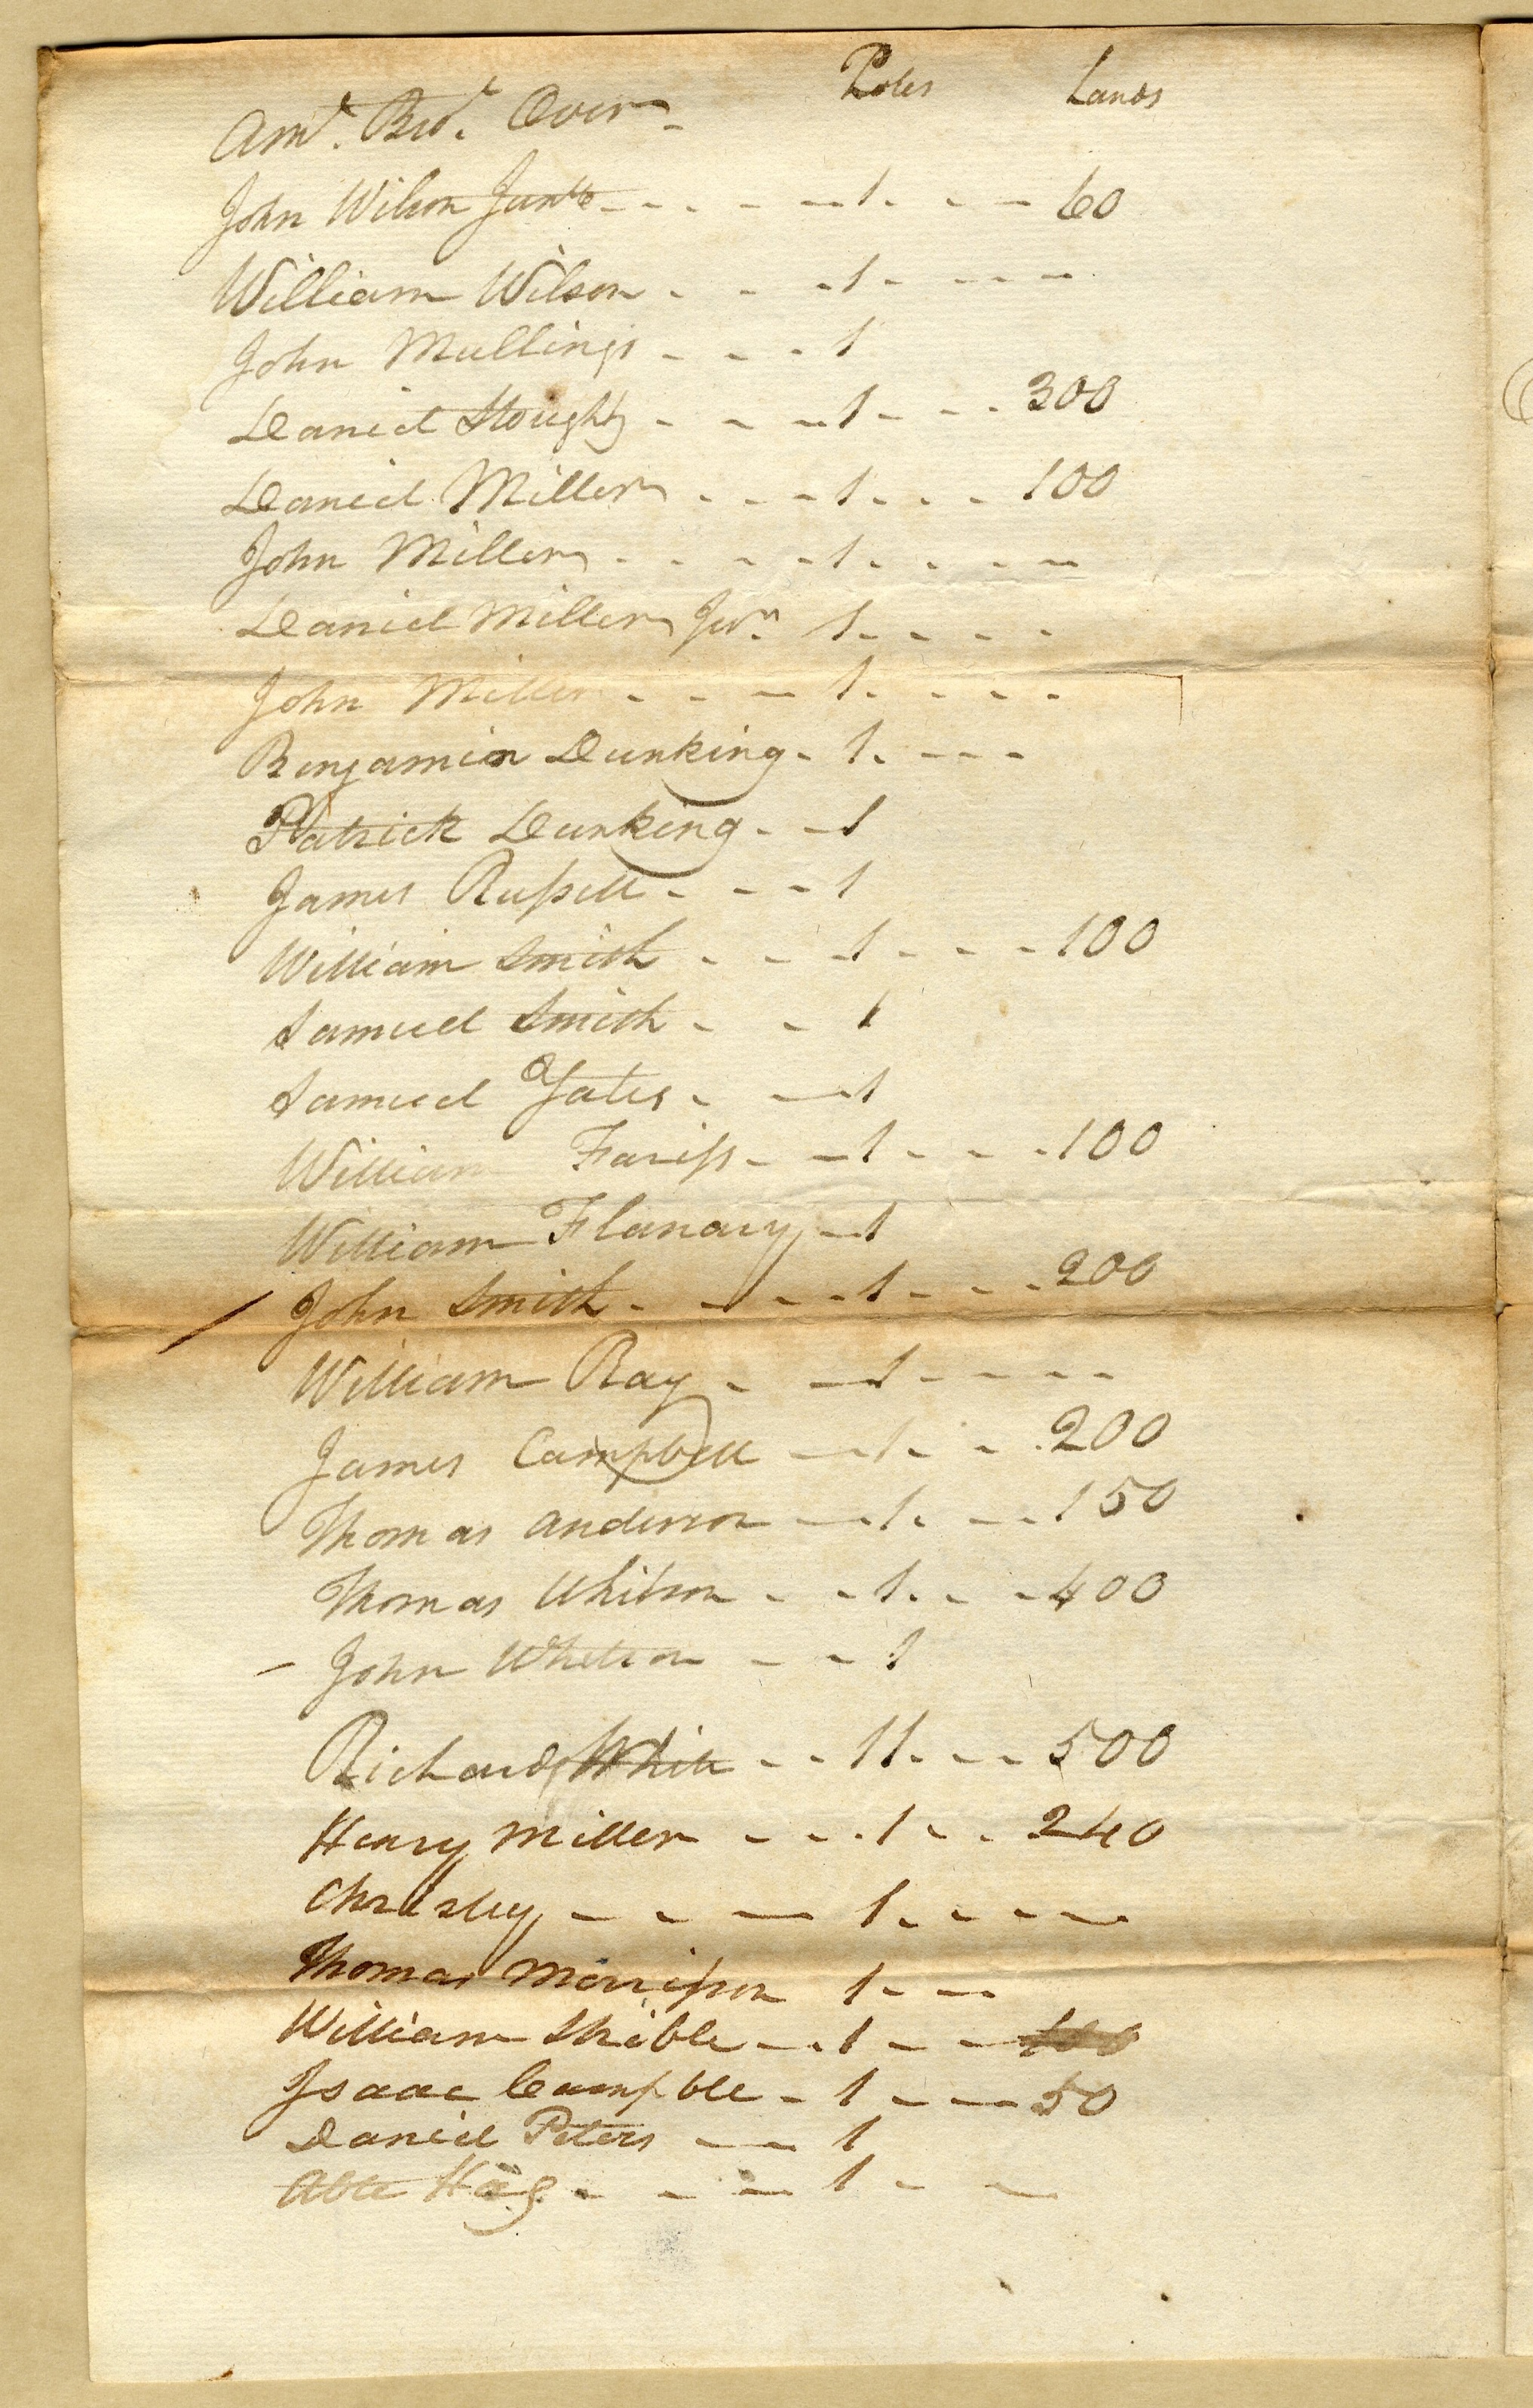 Amt. Brt. Over Poles Lands
John Wilson Junr 1 60
William Wilson 1
John Mullings 1
Daniel Stoughty 1 300
Daniel Miller 1 100
John Miller 1
Daniel Miller Jur. 1
John Miller 1
Benjamin Dunking 1
Patrick Dunking 1
James Russell 1
William Smith 1 100
Samuel Smith 1
Samuel Yates 1
William Fariss 1 100
William Flanary 1
John Smith 1 200
William Ray 1
James Campbell 1 200
Thomas Anderson 1 150
Thomas Whitson 1 400
John Whetson 1
Richard White 11 500
Henry Miller 1 240
Chrisley 1
Thomas Morrisson 1
William Shible 1
Isaac Campble 1 50
Daniel Peters 1
Able Hag 1